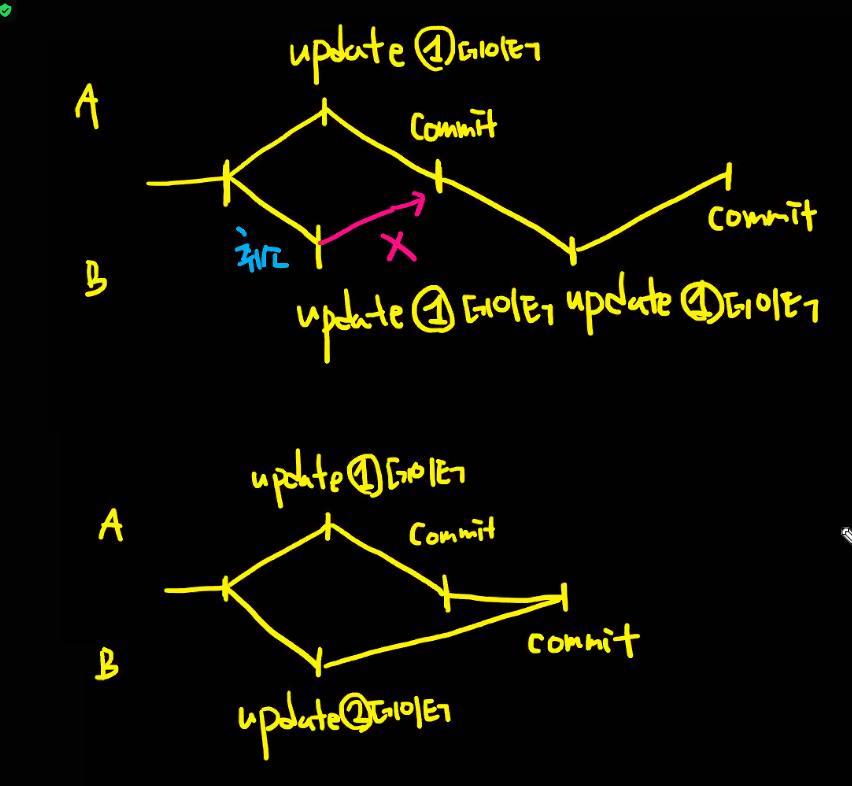 update ①데이터
A
commit
commit
X
B
update ① 데이터 update ①데이터
update ①데이터
A
commit
commit
B
update ②데이터